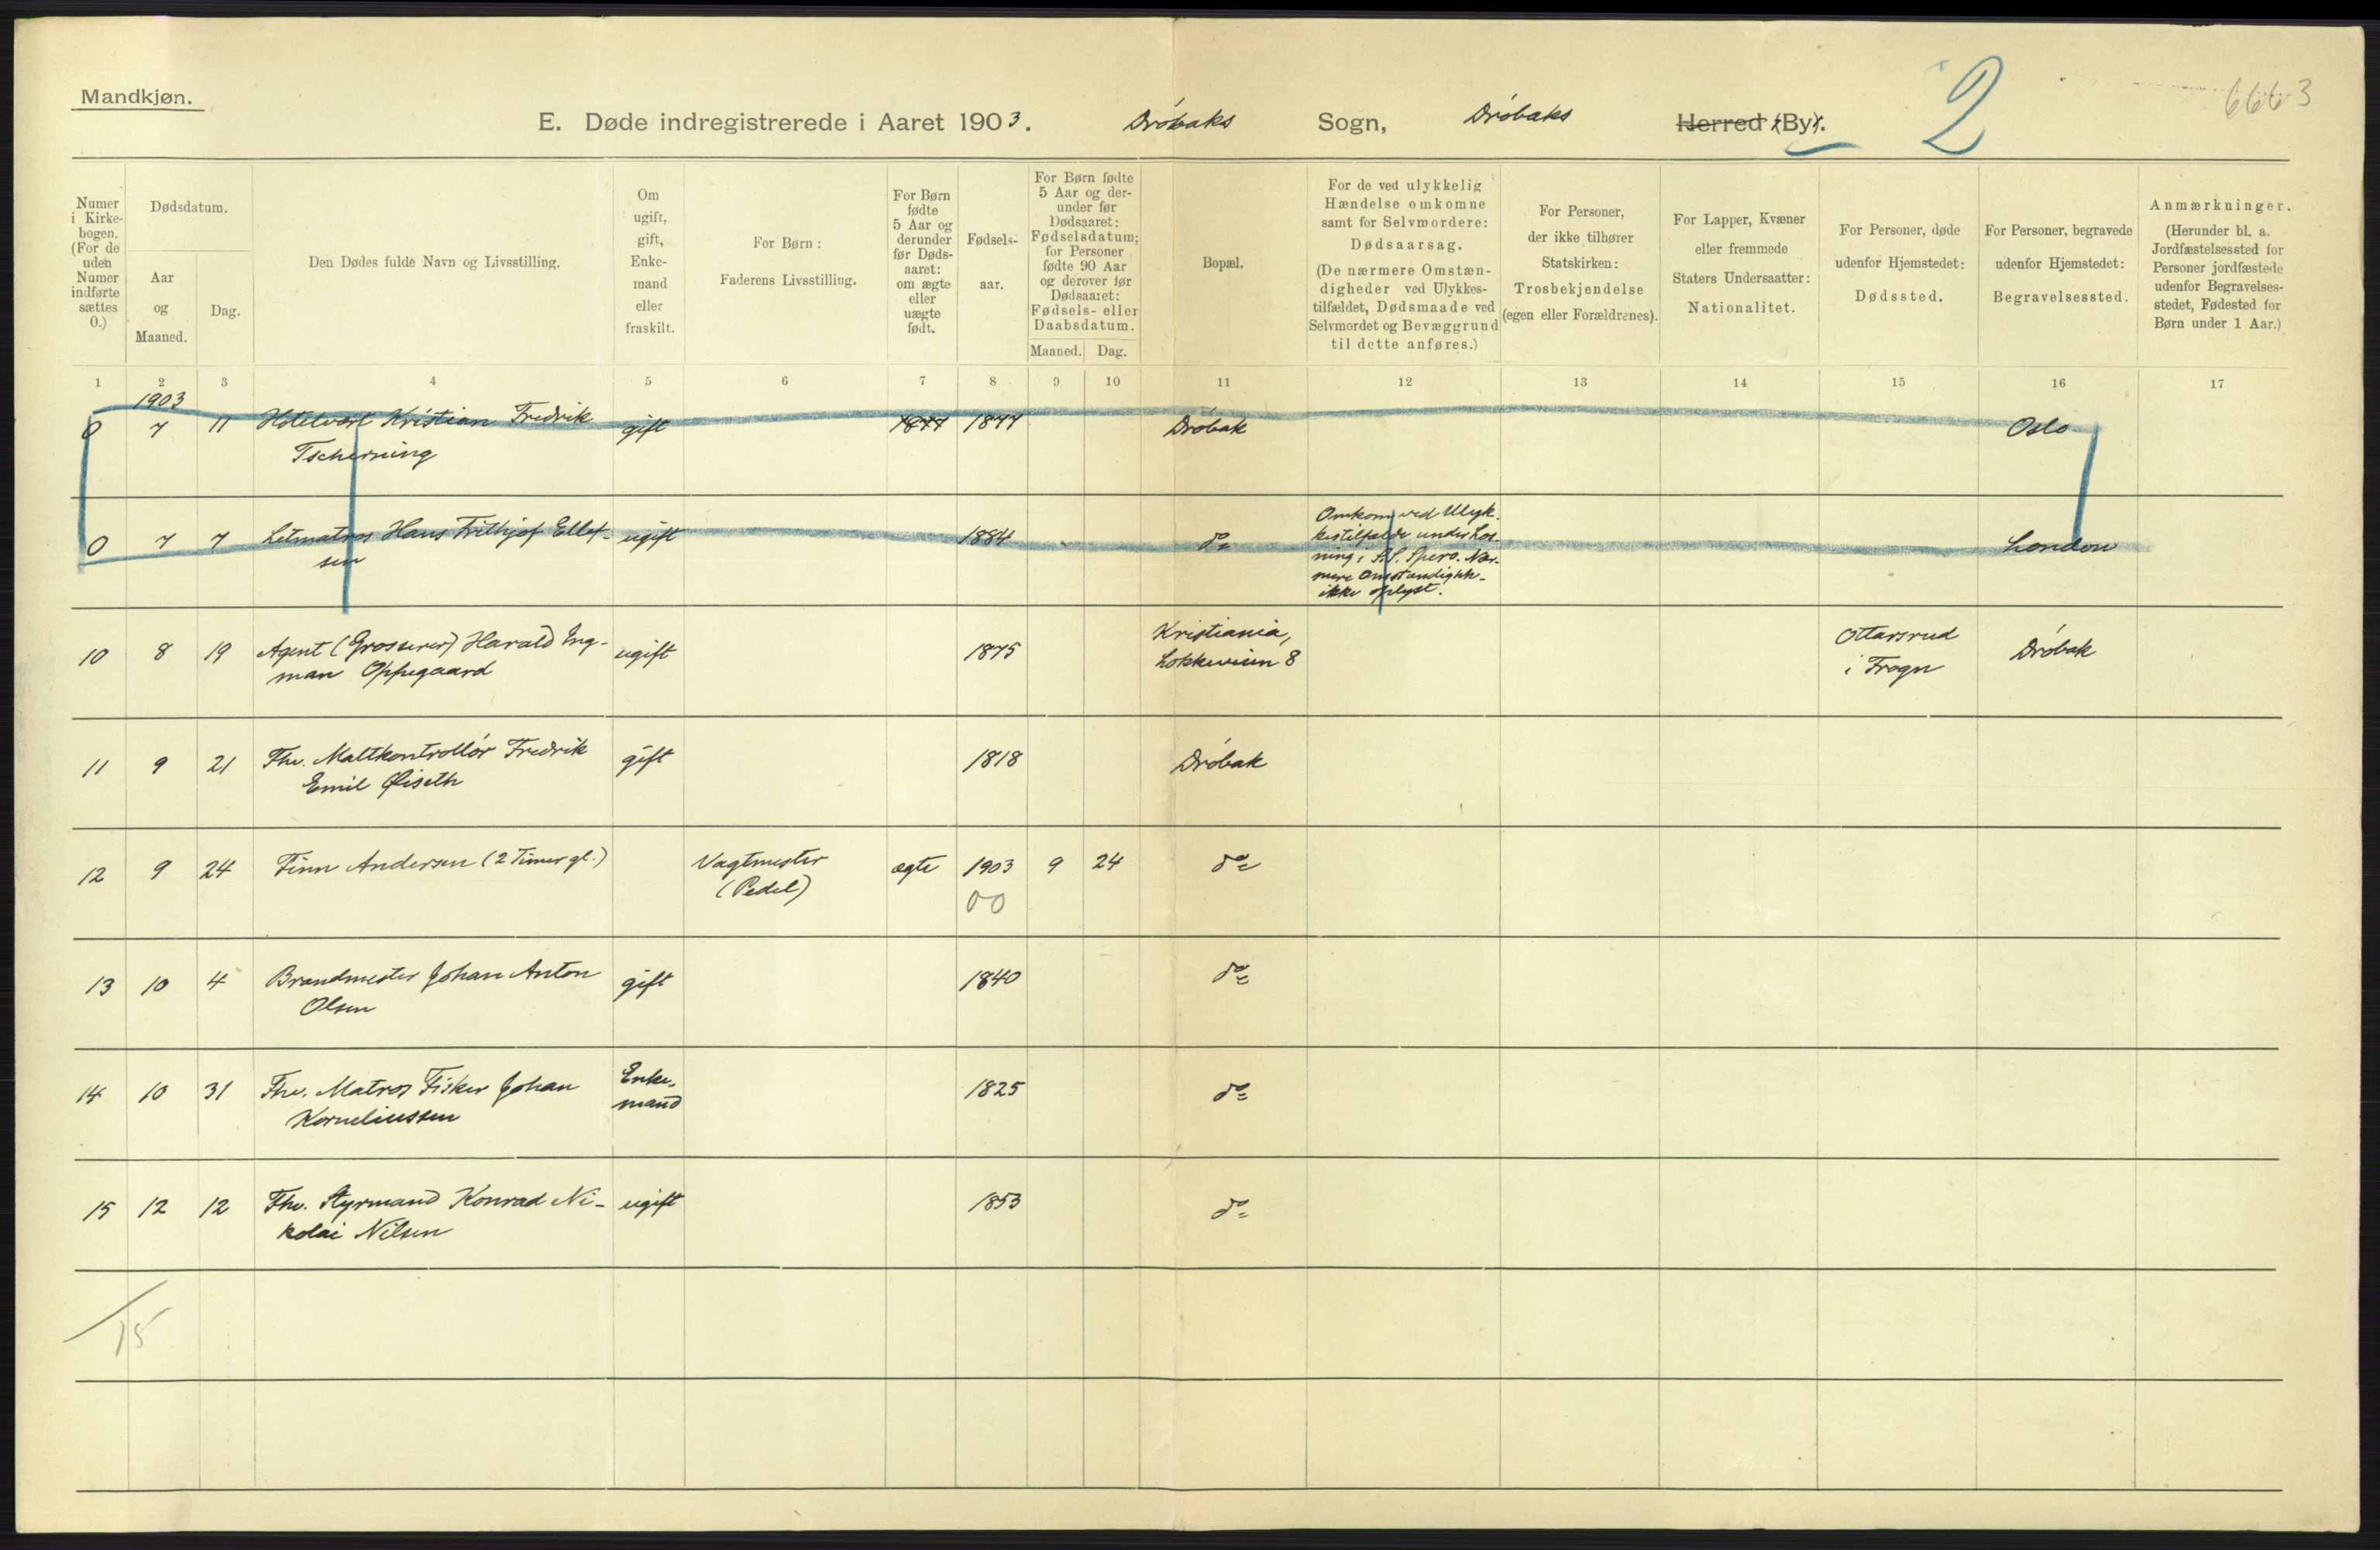 Mandkjøn.
E. Døde indregistrerede i Aaret 1903. Drøbaks Sogn, Drøbaks Herred (By).
2
6663
Numer i Kirkebogen. (For de uden Numer indførte sættes 0.)
Dødsdatum.
Aar og Maaned.
Dag.
Den Dødes fulde Navn og Livsstilling.
Om ugift, gift, Enkemand eller fraskilt.
For Børn:
Faderens Livsstilling.
For Børn fødte 5 Aar og derunder før Dødsaaret: om ægte eller uægte født.
Fødselsaar.
For Børn fødte 5 Aar og derunder før Dødsaaret: Fødselsdatum; for Personer fødte 90 Aar og derover før Dødsaaret: Fødsels- eller Daabsdatum.
Maaned. Dag.
Bopæl.
For de ved ulykkelig Hændelse omkomne samt for Selvmordere: Dødsaarsag.
(De nærmere Omstændigheder ved Ulykkestilfældet, Dødsmaade ved Selvmordet og Bevæggrund til dette anføres.)
For Personer, der ikke tilhører Statskirken: Trosbekjendelse (egen eller Forældrenes).
For Lapper, Kvæner eller fremmede Staters Undersaatter: Nationalitet.
For Personer, døde udenfor Hjemstedet: Dødssted.
For Personer, begravede udenfor Hjemstedet: Begravelsessted.
Anmærkninger.
(Herunder bl. a. Jordfæstelsessted for Personer jordfæstede udenfor Begravelsesstedet, Fødested for Børn under 1 Aar.)
1 2 3 4 5 6 7 8 9 10 11 12 13 14 15 16 17
1903
0 7 11 Hotelvært Kristian Fredrik gift 1877 1877 Drøbak Oslo
Tscherning
0 7 7 Letmatros Hans Frithjof Ellef- ugift 1884 do London
sen
Omkom ved Ulyk-
kestilfælde under Los-
ning i S.S. Spero. Nær-
mere Omstændighh.
ikke oplyst.
10 8 19 Agent (Grosserer) Harald Ing- ugift 1875 Kristiania, Ottarsrud Drøbak
man Oppegaard Løkkeveien 8 i Frogn
11 9 21 Fhv. Maltkontrollør Fredrik gift 1818 Drøbak
Emil Øiseth
12 9 24 Finn Andersen (2 Timer gl.) Vagtmester ægte 1903 9 24 do
(Pedel) 00
13 10 4 Brandmester Johan Anton gift 1840 do
Olsen
14 10 31 Fhv. Matros Fisker Johan Enke- 1825 do
Korneliussen mand
15 12 12 Fhv. Styrmand Konrad Ni- ugift 1853 do
kolai Nilsen
15